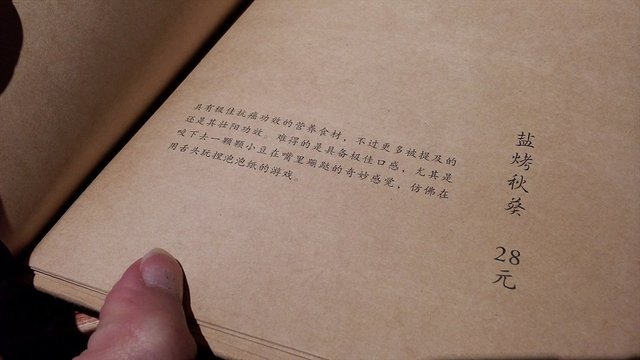 具有极佳抗癌功效的营养食材，不过更多被提及的
还是其壮阳功效。难得的是具备极佳口感，尤其是
咬下去一颗颗小豆在嘴里蹦跶的奇妙感觉，仿佛在
用舌头玩捏泡泡纸的游戏。
盐烤秋葵
28
元